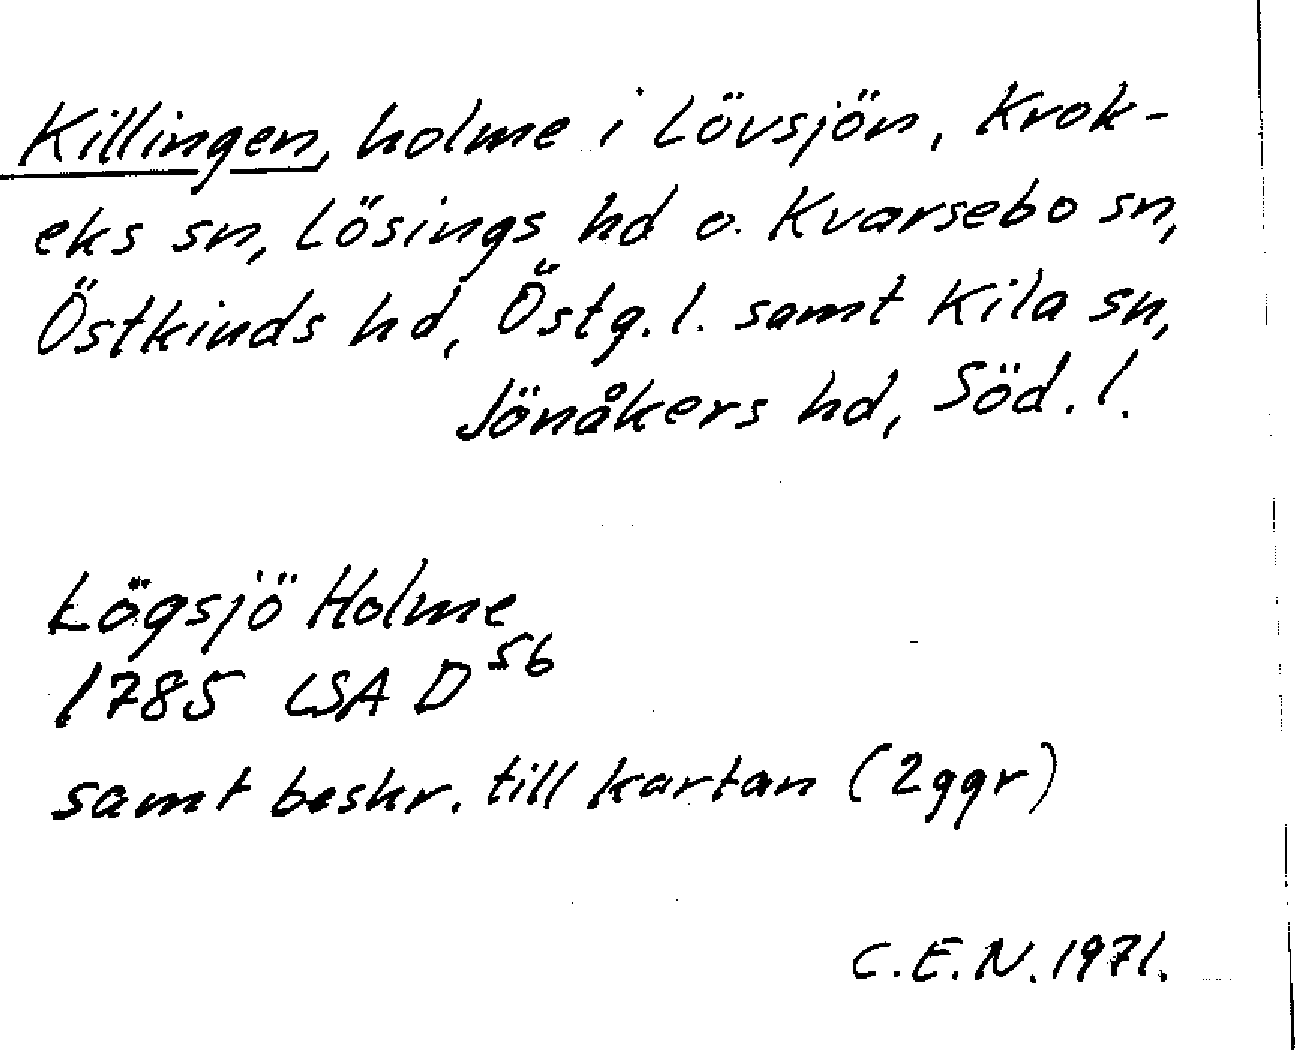 Killingen, holme i Lövsjön, Krok-
eks sn, Lösings hd o. Kvarsebo sn,
Östkinds hd, Östg. l. samt Kila sn,
Jönåkers hd, Söd. l.
Lögsjö Holme
1785 LSA D 56
samt beskr. till kartan (2ggr)
C.E.N. 1971.